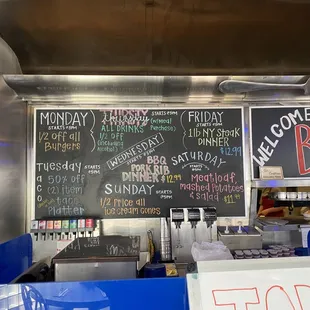 MONDAY
STARTS @5PM
1/2 Off all
Burgers
Tuesday
STARTS @5PM
50% off
(2) item
Platter
THIRSTY
Thursday
ALL DRINKS
1/2 Off
STARTS @5PM
(w/Meal
Purchase)
WEDNESDAY
STARTS @5PM
BBQ
PORK RIB
DINNER
$12.99
SUNDAY
STARTS @5PM
1/2 price all
Ice cream cones
FRIDAY
STARTS @5PM
1 lb NY Steak
DINNER
$12.99
SATURDAY
STARTS @5PM
meatloaf,
mashed potatoes
and salad
$11.99
WELCOME
TO